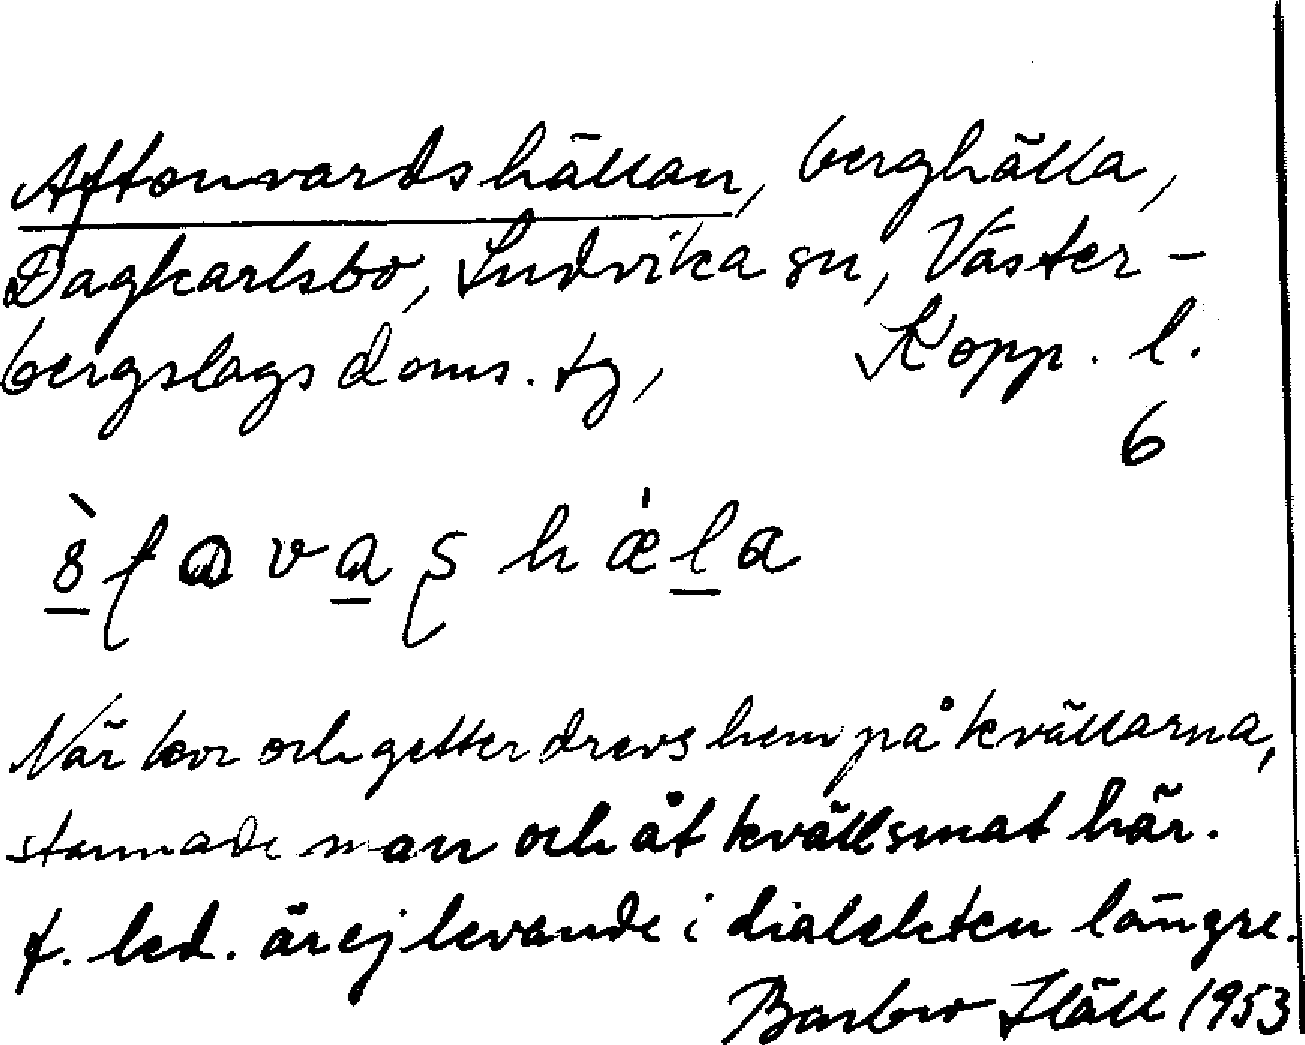 Aftonvardshällan, berghälla,
Dagkarlsbo, Ludvika sn, Väster-
bergslags doms. tg, Kopp. l.
6
När kor och getter drevs hem på kvällarna,
stannade man och åt kvällsmat här.
f. led. är ej levande i dialekten längre.
Barbro Häll 1953